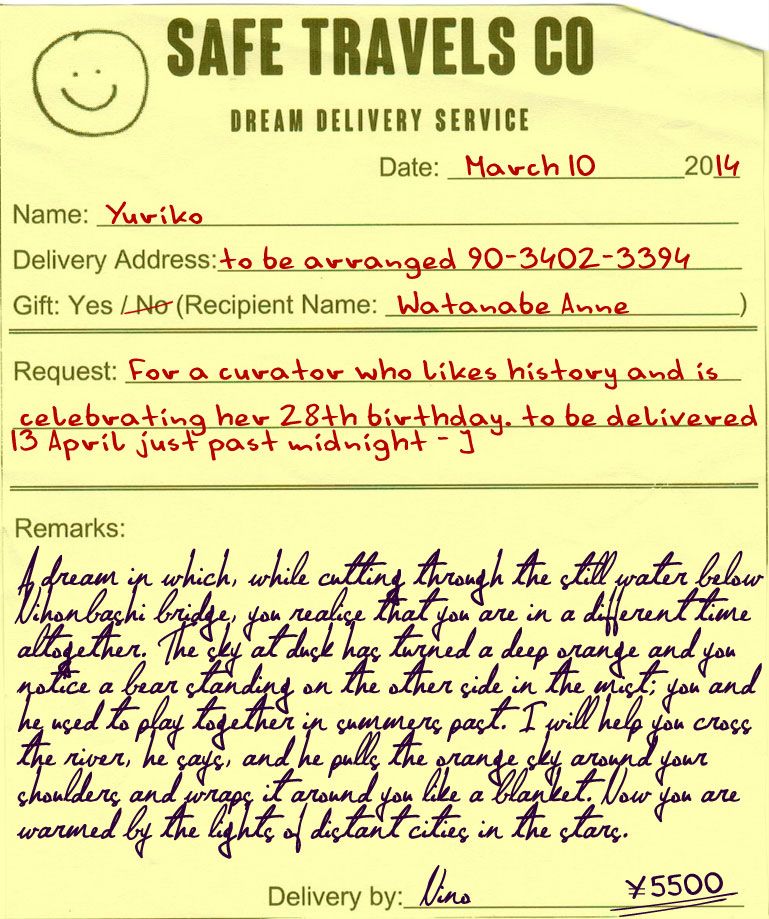 SAFE TRAVELS CO
DREAM DELIVERY SERVICE
Date: March 10 2014
Name: Yuriko
Delivery Address: to be arranged 90-3402-3394
Gift: Yes / No (Recipient Name: Watanabe Anne )
Request: For a curator who likes history and is
celebrating her 28th birthday. to be delivered
13 April just past midnight - J
Remarks:
A dream in which, while cutting through the still water below
Nihonbashi bridge, you realise that you are in a different time
altogether. The sky at dusk has turned a deep orange and you
notice a bear standing on the other side in the mist; you and
he used to play together in summers past. I will help you cross
the river, he says, and he pulls the orange sky around your
shoulders and wraps it around you like a blanket. Now you are
warmed by the lights of distant cities in the stars.
Delivery by: Nino ¥5500